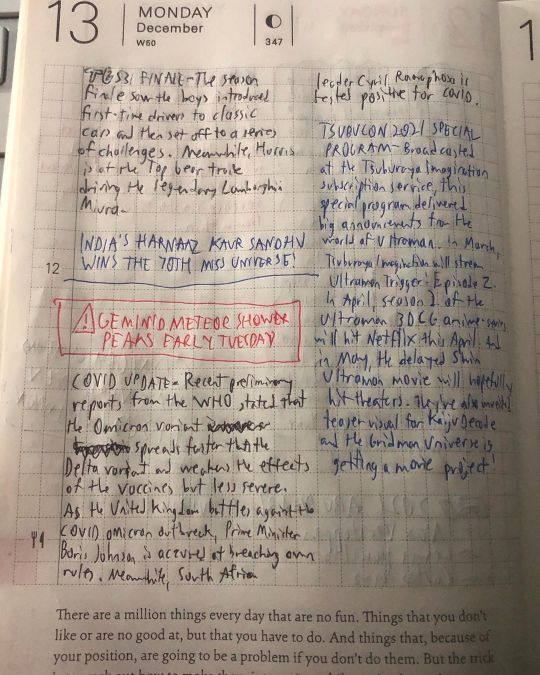 13
MONDAY
December
W50
347
1
TGS31 FINALE - The season
finale saw the boys introduced
first-time drivers to classic
cars and then set off to a series
of challenges. Meanwhile, Harris
is at the Top Gear track
driving the legendary Lamborghini
Miura.
INDIA'S HARNAAZ KAUR SANDHU
WINS THE 70TH MISS UNIVERSE!
12
GEMINID METEOR SHOWER
PEAKS EARLY TUESDAY
COVID UPDATE - Recent preliminary
reports from the WHO stated that
the Omicron variant
spreads faster than the
Delta variant and weakens the effects
of the vaccines but less severe.
As the United Kingdom battles against the
COVID omicron outbreak, Prime Minister
Boris Johnson is accused of breaching own
rules. Meanwhile, South Africa
leader Cyril Ramaphosa is
tested positive for COVID.
TSUBUCON 2021 SPECIAL
PROGRAM - Broadcasted
at the Tsuburaya Imagination
subscription service, this
special program delivered
big announcements from the
world of Ultraman. In March,
Tsuburaya Imagination will stream
Ultraman Trigger: Episode Z.
In April, season 2 of the
Ultraman 3DCG anime series
will hit Netflix this April. And
in May, the delayed Shin
Ultraman movie will hopefully
hit theaters. They've also unveiled
teaser visual for Kaiju Decade
and the Gridman Universe is
getting a movie project!
There are a million things every day that are no fun. Things that you don't
like or are no good at, but that you have to do. And things that, because of
your position, are going to be a problem if you don't do them. But the trick